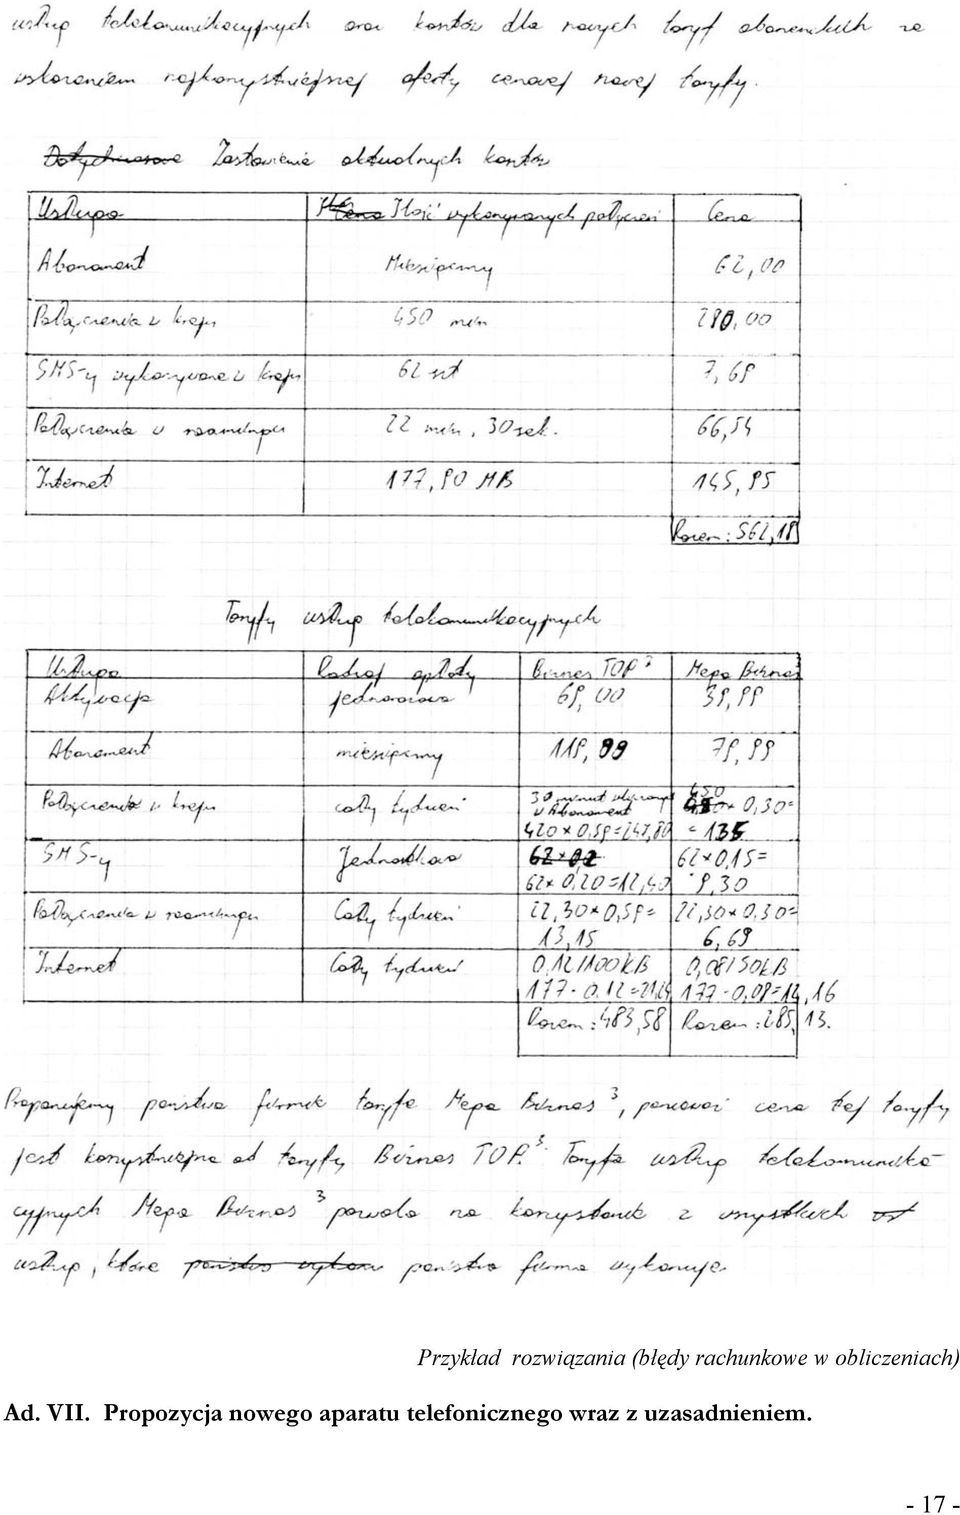 usług telekomunikacyjnych oraz kosztów dla nowych taryf abonenckich ze
wskazaniem najkorzystniejszej oferty cenowej nowej taryfy.
Dotychczasowe Zestawienie aktualnych kosztów
Usługa Ilość wykonywanych połączeń Cena
Abonament Miesięczny 62,00
Połączenia w kraju 450 min 280,00
SMS-y wykonywane w kraju 62 szt 7,69
Połączenia w roamingu 22 min, 30 sek. 66,54
Internet 177,90 MB 145,95
Razem: 562,18
Taryfy usług telekomunikacyjnych
Usługa Rodzaj opłaty Biznes TOP 3 Mega Biznes
Aktywacja jednorazowa 69,00 39,99
Abonament miesięczny 119,99 79,99
Połączenia w kraju cały tydzień 30 minut wliczonych w Abonament 450 × 0,30=
420 × 0,59=247,80 = 135
SMS-y Jednostkowa 62×0,2 62×0,15=
62× 0,20=12,40 9,30
Połączenia w roamingu Cały tydzień 22,30×0,59= 22,30×0,30=
13,15 6,69
Internet Cały tydzień 0,12/100kB 0,08/50kB
177·0,12=21,24 177·0,08=14,16
Razem: 483,58 Razem: 285,13.
Proponujemy państwa firmie taryfę Mega Biznes 3, ponieważ cena tej taryfy
jest korzystniejsza od taryfy Biznes TOP 3. Taryfa usług telekomunika-
cyjnych Mega Biznes 3 pozwala na korzystanie z wszystkich
usług, które państwo państwa firma wykonuje.
Przykład rozwiązania (błędy rachunkowe w obliczeniach)
Ad. VII. Propozycja nowego aparatu telefonicznego wraz z uzasadnieniem.
- 17 -